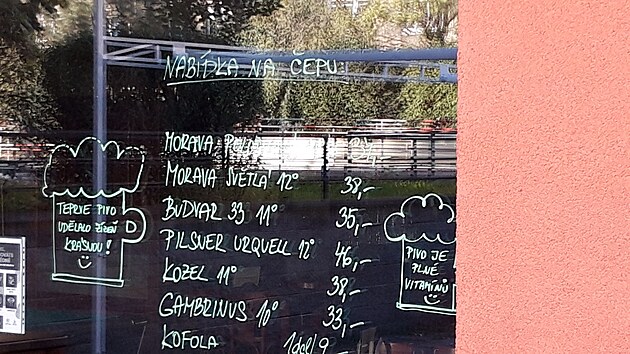 NABÍDKA NA ČEPU:
MORAVA
MORAVA SVĚTLÁ 12° 38,-
BUDVAR 33 11° 35,-
PILSNER URQUELL 12° 46,-
KOZEL 11° 38,-
GAMBRINUS 10° 33,-
KOFOLA 1dcl/9
TEPRVE PIVO
UDĚLALO ŽÍZEŇ
KRÁSNOU!
PIVO JE
PLNÉ
VITAMÍNŮ